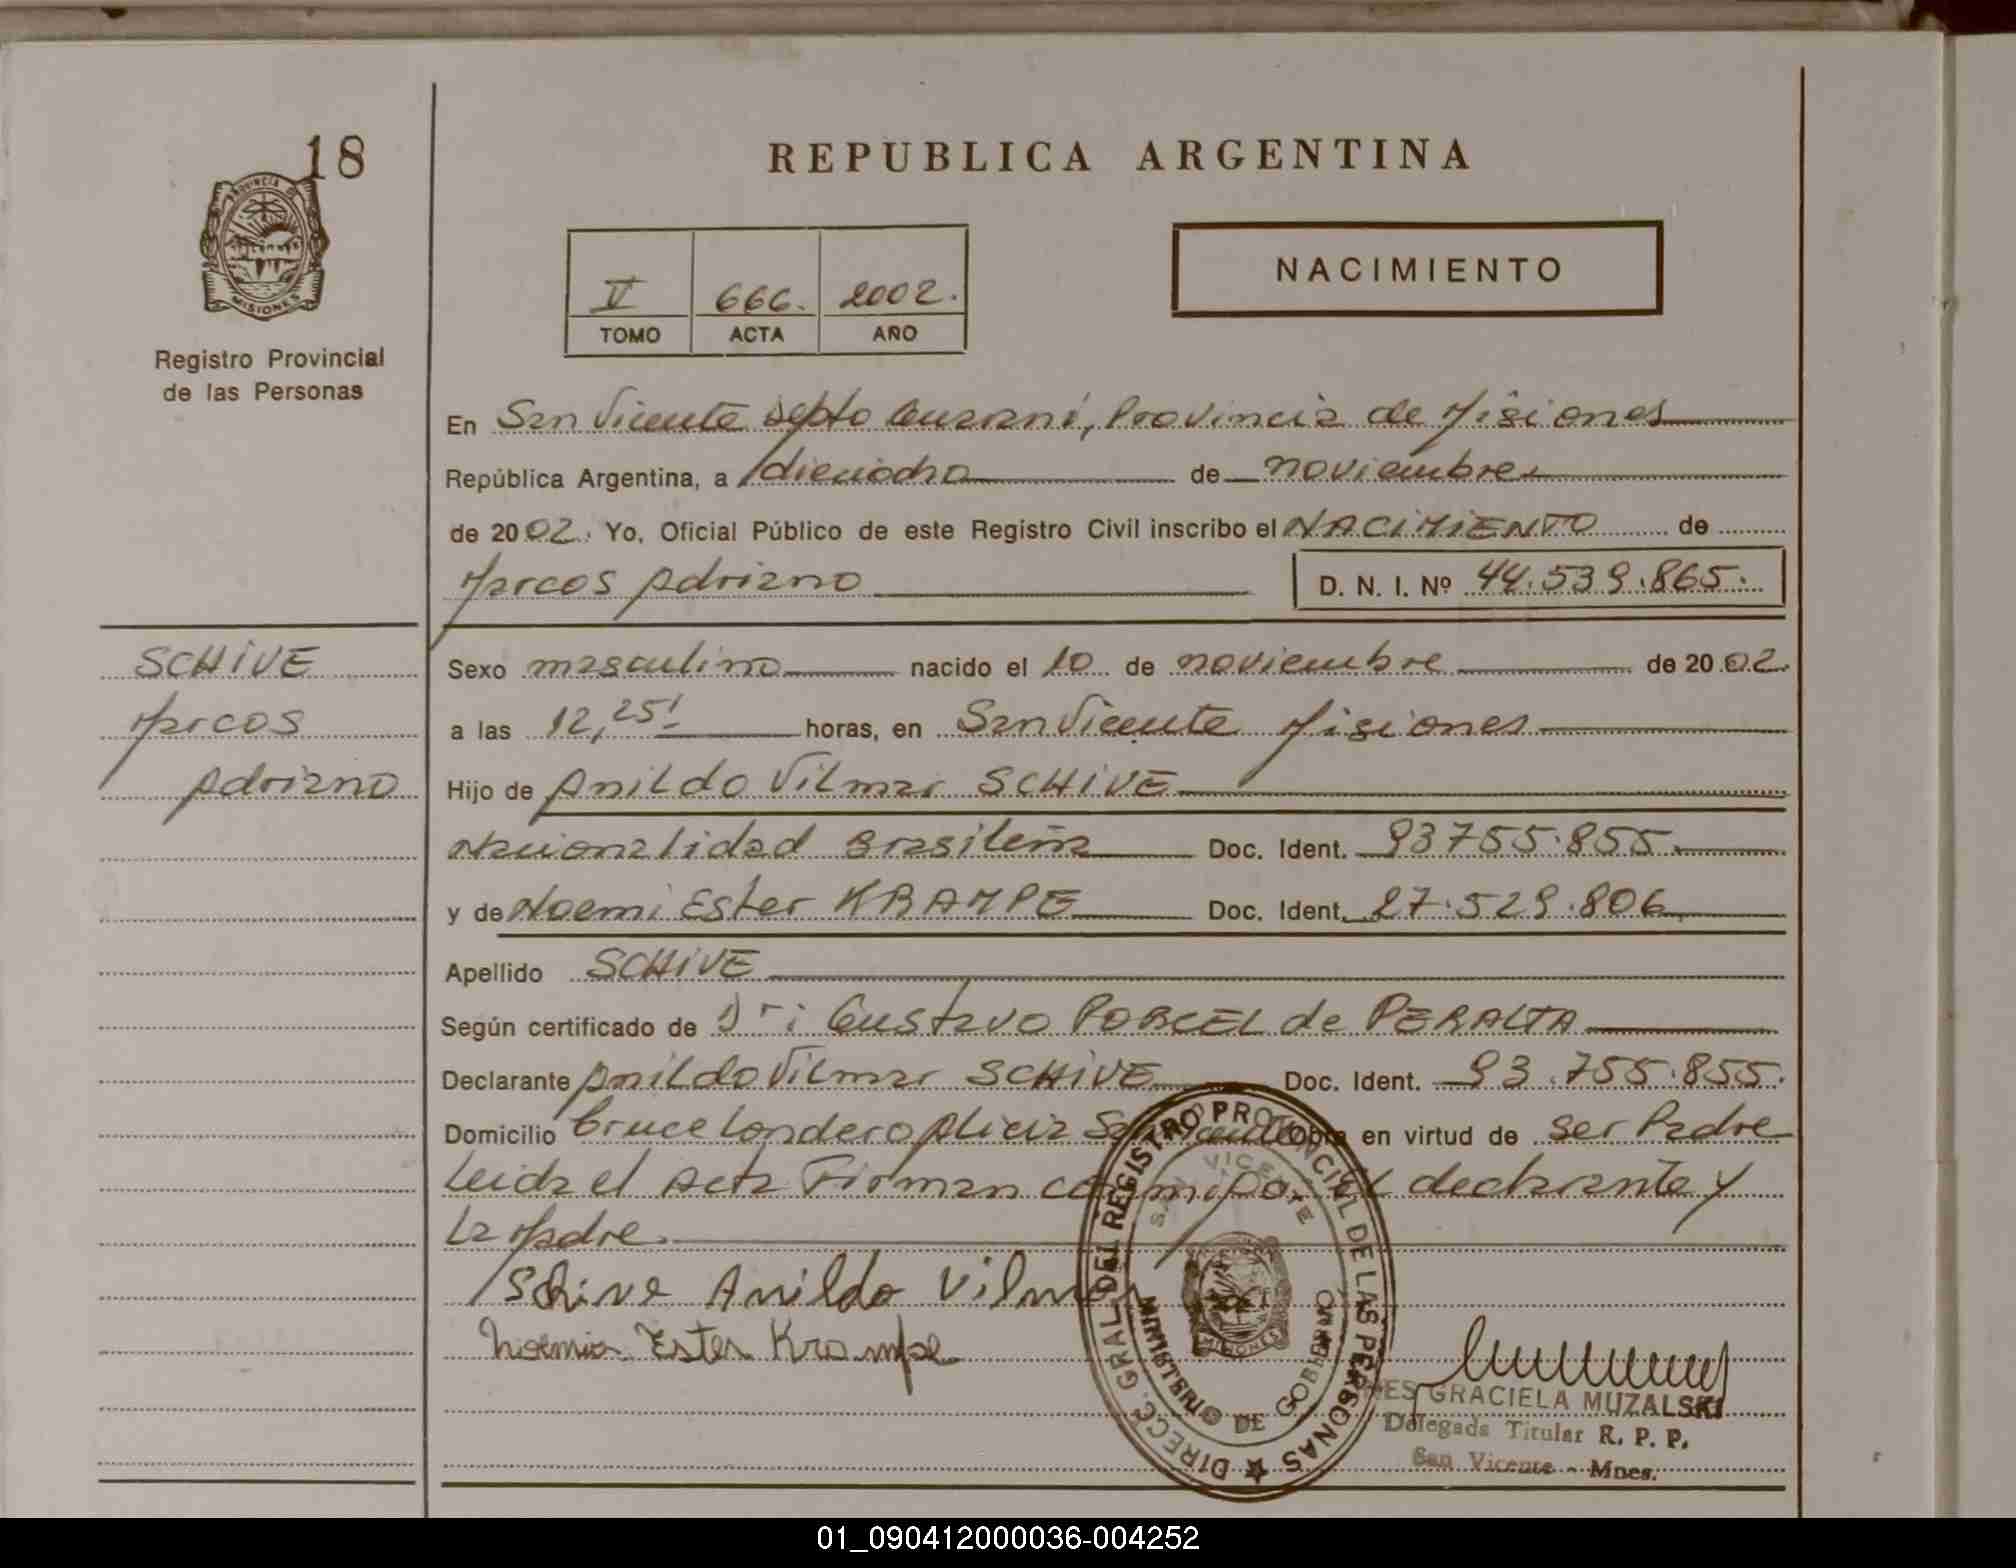 18
PROVINCIA DE
MISIONES
Registro Provincial
de las Personas
SCHIVE
Marcos
Adriano
REPUBLICA ARGENTINA
V 666. 2002.
TOMO ACTA AÑO
NACIMIENTO
En San Vicente Depto Guarani, Provincia de Misiones
República Argentina, a dieciocho de noviembre
de 2002. Yo, Oficial Público de este Registro Civil inscribo el NACIMIENTO de
Marcos Adriano D. N. I. Nº 44.539.865.
Sexo masculino nacido el 10 de noviembre de 2002.
a las 12,25' horas, en San Vicente Misiones
Hijo de Anildo Vilmar SCHIVE
Nacionalidad Brasileña Doc. Ident. 93755.855.
y de Noemi Ester KRAMPE Doc. Ident. 27.529.806
Apellido SCHIVE
Según certificado de Dr: Gustavo PORCEL de PERALTA
Declarante Anildo Vilmar SCHIVE Doc. Ident. 93.755.855.
Domicilio Cruce Londero Alicia San Vicente Obra en virtud de ser Padre
Leida el Acta Firman conmigo el declarante y
La Madre.
Schive Anildo Vilmar
Noemia Ester Krampe
DIRECC. GRAL DEL REGISTRO PROVINCIAL DE LAS PERSONAS
SAN VICENTE
MISIONES
MINISTERIO DE GOBIERNO
INES GRACIELA MUZALSKI
Delegada Titular R. P. P.
San Vicente - Mnes.
01_090412000036-004252